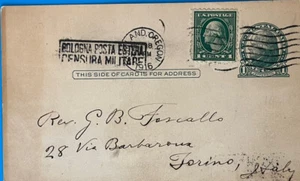 AND, OREGON
1916
BOLOGNA POSTA ESTERA
CENSURA MILITARE
U.S. POSTAGE
1 CENT 1
THIS SIDE OF CARD IS FOR ADDRESS
Rev. G. B.
28 Via Barbaroux
Torino, Italy